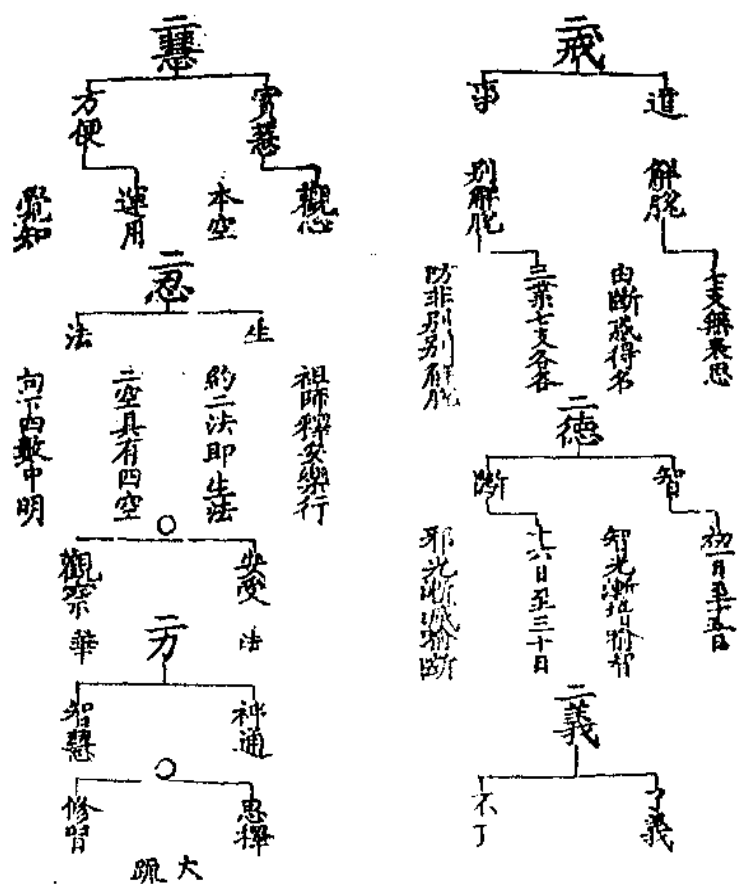 二戒
道
事
解脫
別解脫
七支無表思
由斷惑得名
三業七支各各
防非別別解脫
二德
智
斷
初一日至十五日
智光漸增喻智
十六日至三十日
邪光漸減喻斷
二義
了義
不了
二慧
實慧
方便
觀心
本空
運用
覺知
二忍
生
法
祖師釋安樂行
約二法即生法
二空具有四空
向下四數中明
安受
觀察
法
華
二力
神通
智慧
思擇
修習
大
疏